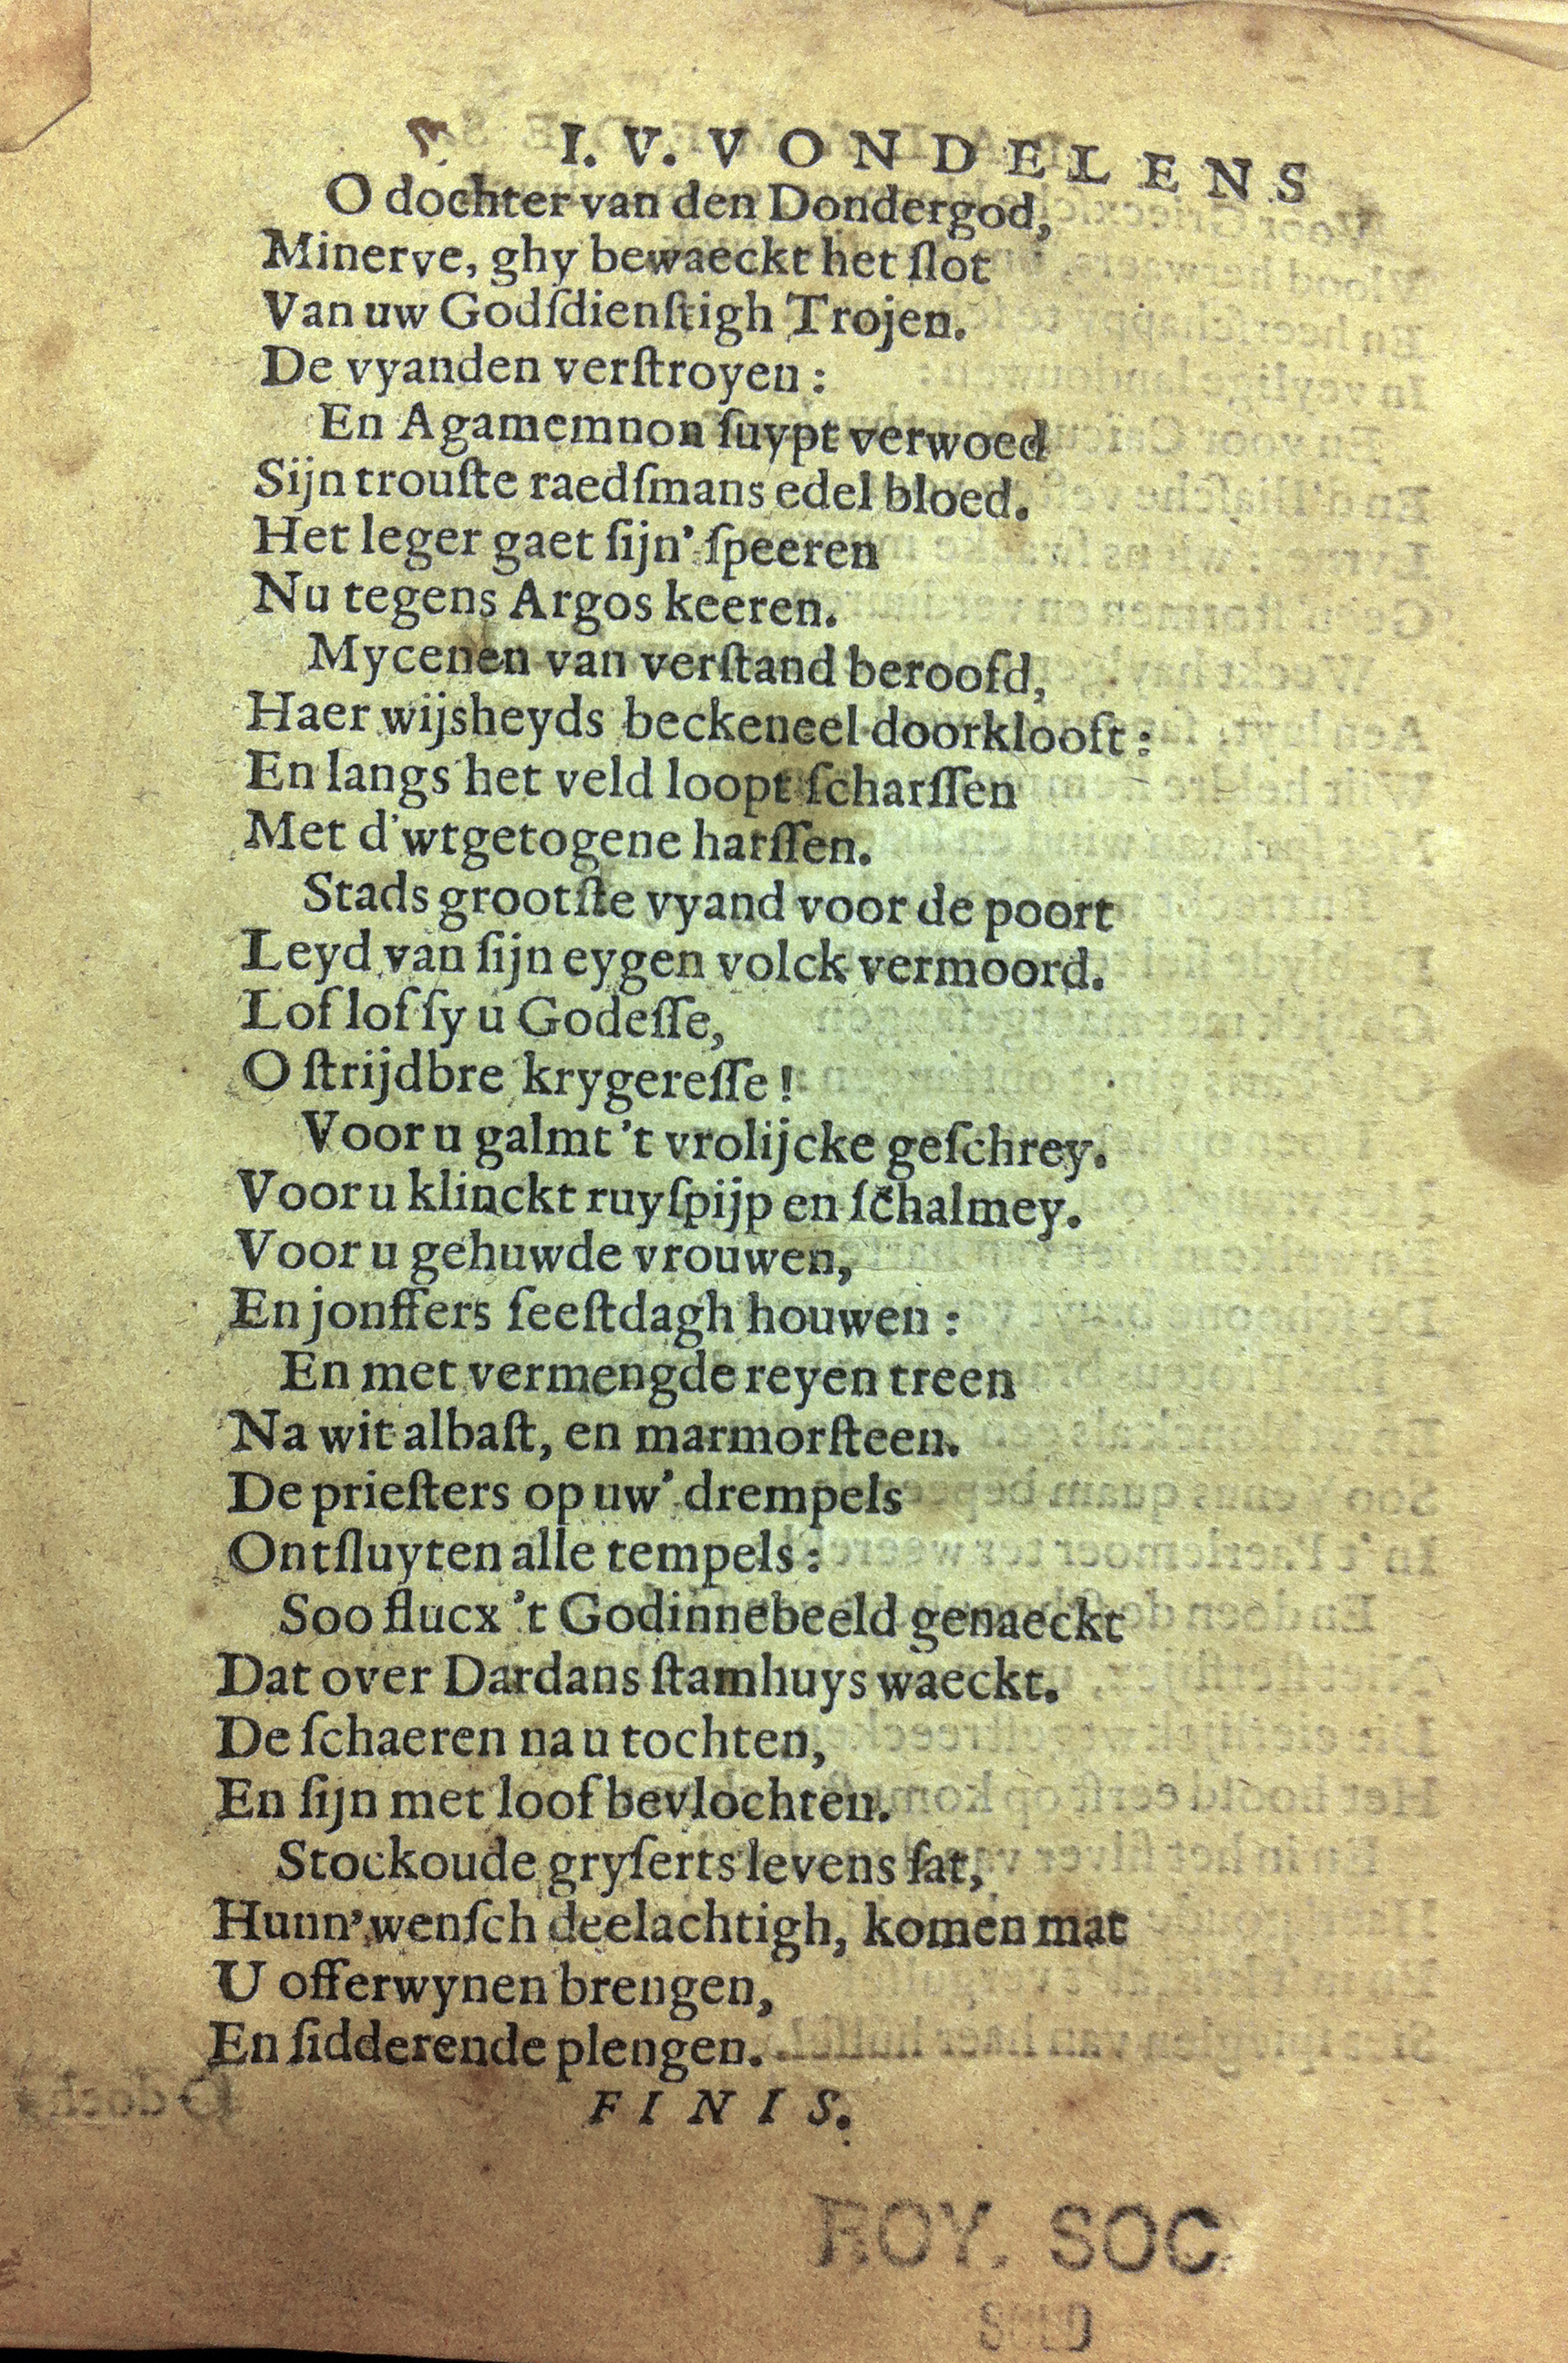 I. V. VONDELENS
O dochter van den Dondergod,
Minerve, ghy bewaeckt het ſlot
Van uw Godſdienſtigh Trojen.
De vyanden verſtroyen:
En Agamemnon ſuypt verwoed
Sijn trouſte raedſmans edel bloed.
Het leger gaet ſijn' ſpeeren
Nu tegens Argos keeren.
Mycenen van verſtand beroofd,
Haer wijsheyds beckeneel doorklooft:
En langs het veld loopt ſcharſſen
Met d'wtgetogene harſſen.
Stads grootſte vyand voor de poort
Leyd van ſijn eygen volck vermoord.
Lof lof ſy u Godeſſe,
O ſtrijdbre krygereſſe!
Voor u galmt 't vrolijcke geſchrey.
Voor u klinckt ruyſpijp en ſchalmey.
Voor u gehuwde vrouwen,
En jonffers feeſtdagh houwen:
En met vermengde reyen treen
Na wit albaſt, en marmorſteen.
De prieſters op uw' drempels
Ontſluyten alle tempels:
Soo flucx 't Godinnebeeld genaeckt
Dat over Dardans ſtamhuys waeckt.
De ſchaeren na u tochten,
En ſijn met loof bevlochten.
Stockoude gryſerts levens ſat,
Hunn' wenſch deelachtigh, komen mat
U offerwynen brengen,
En ſidderende plengen.
FINIS.
ROY. SOC